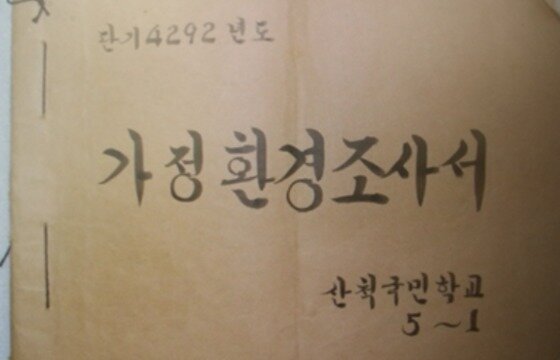 단기4292년도
가정환경조사서
산척국민학교
5~1